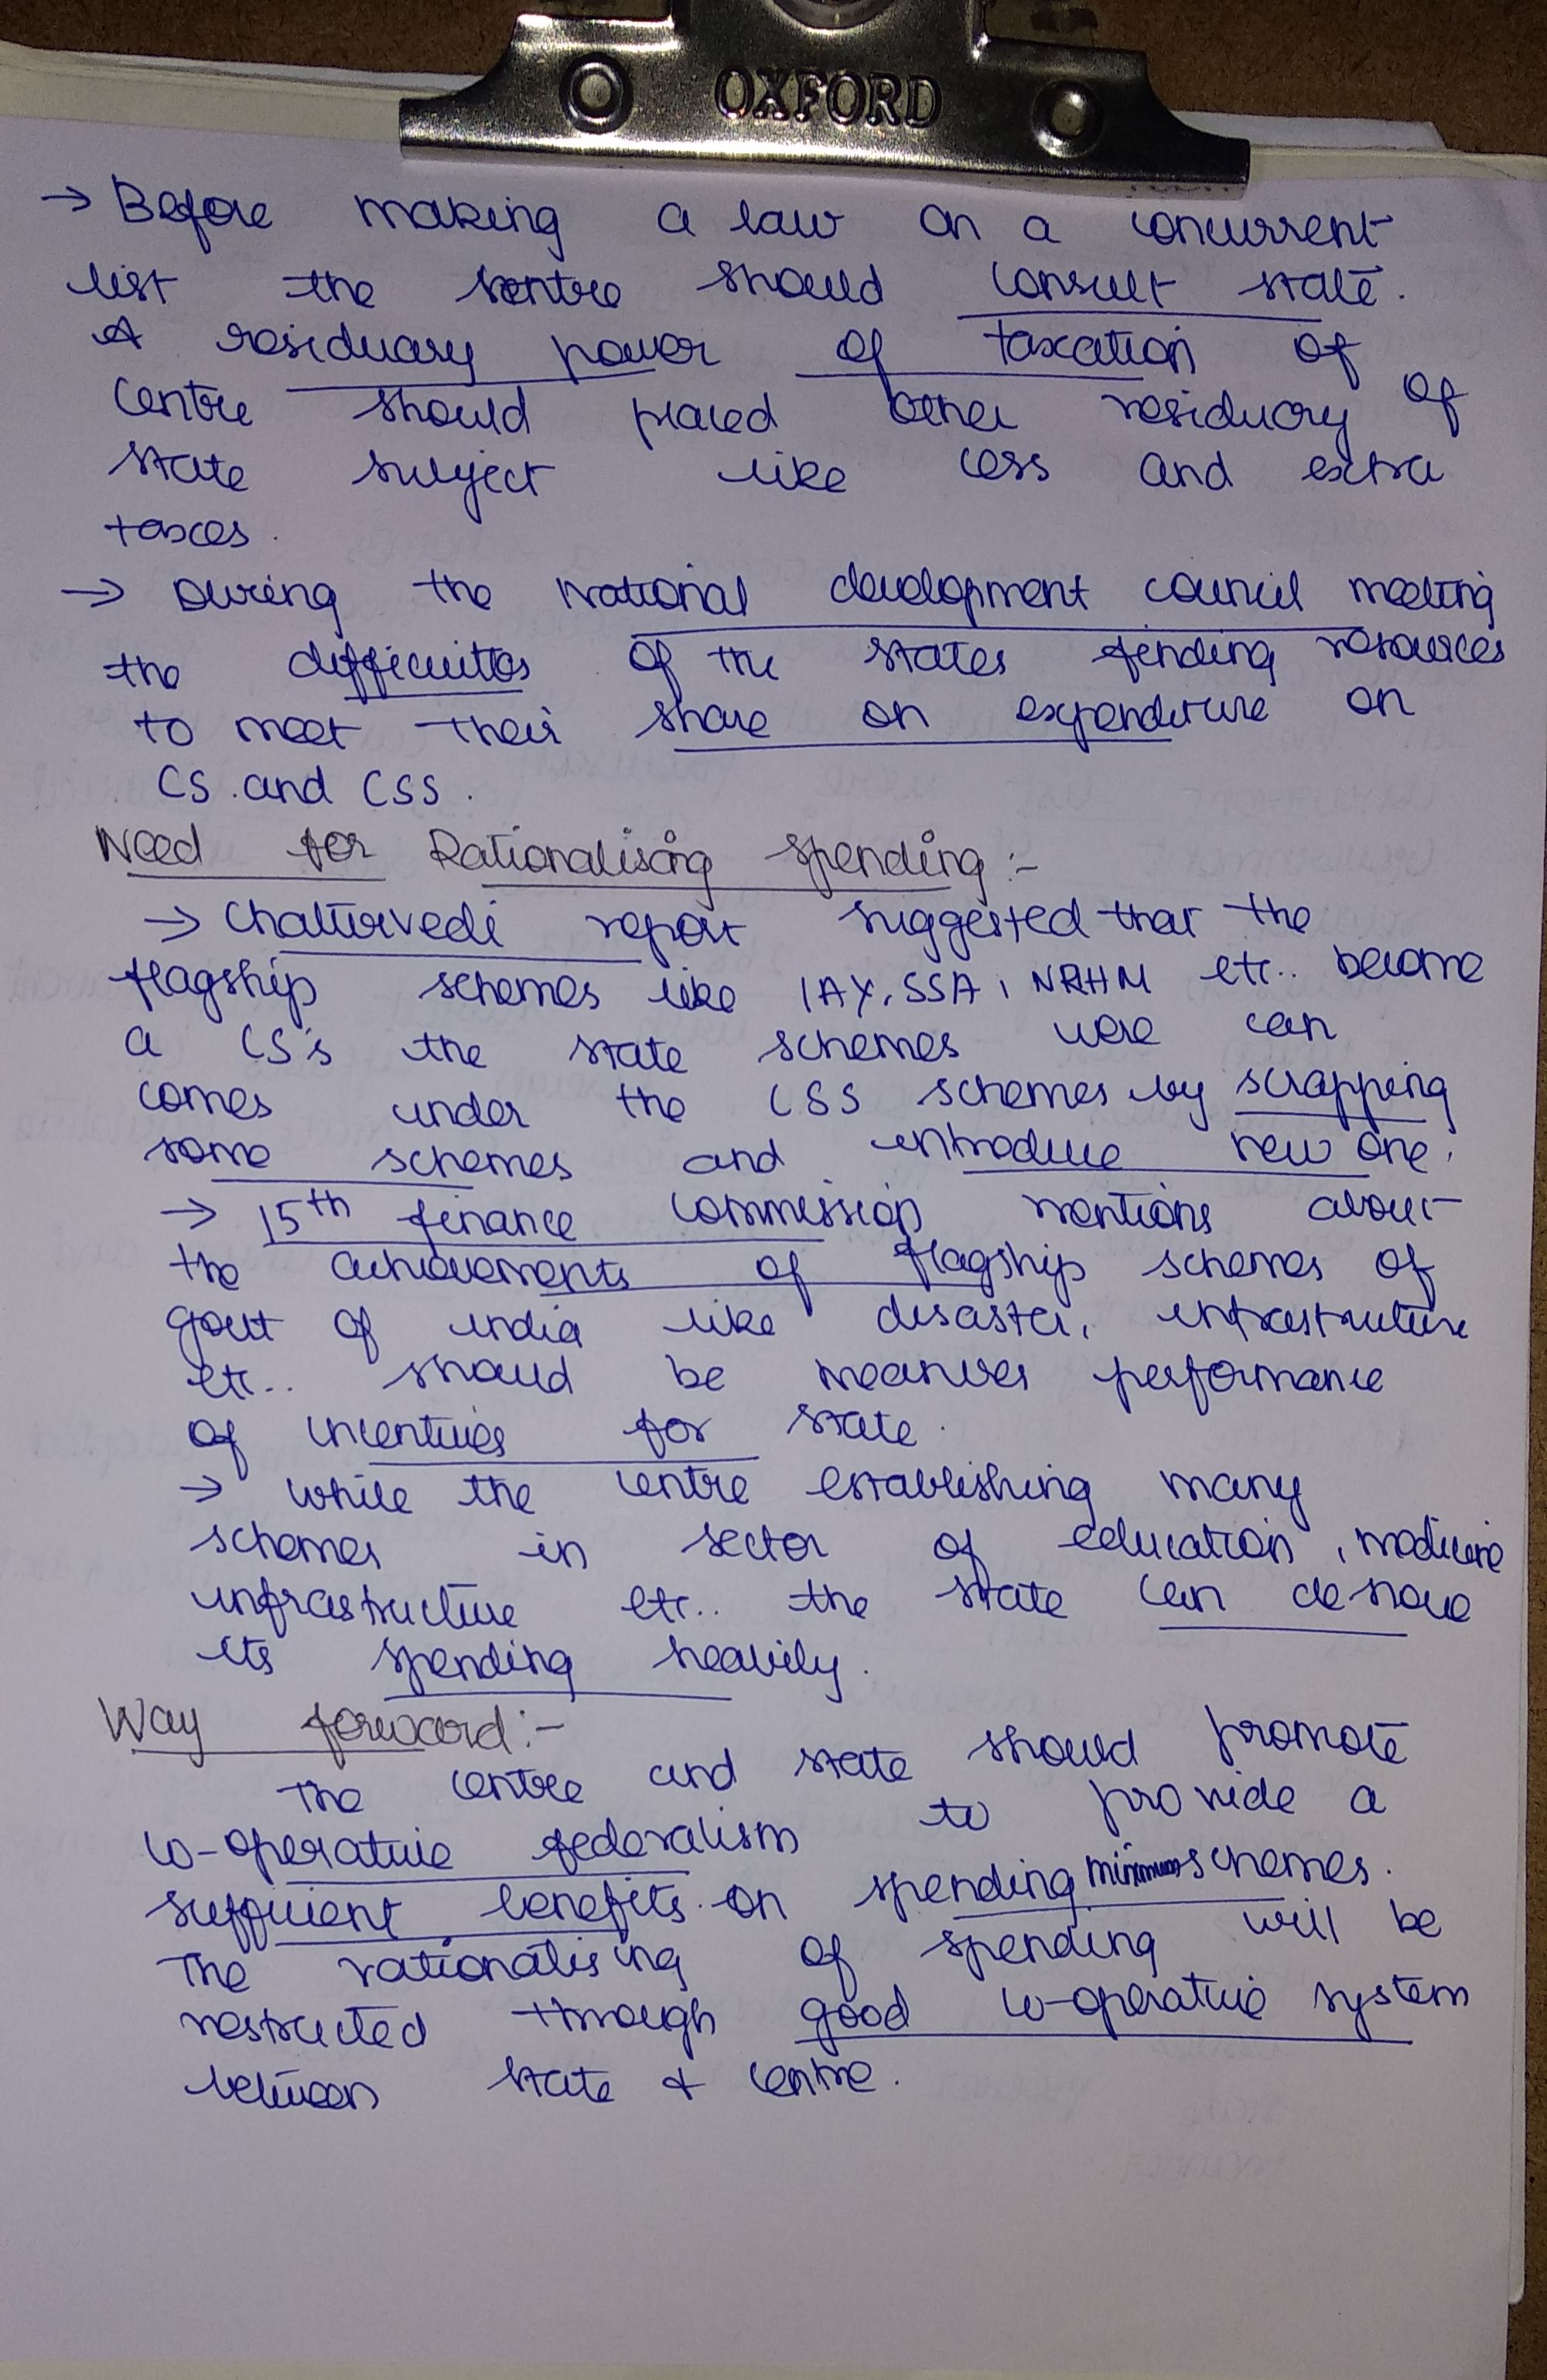 OXFORD
→ Before making a law on a concurrent
list the centre should consult state.
A residuary power of taxation of
centre should placed other residuary of
state subject like cess and extra
taxes.
→ During the National development council meeting
the difficulties of the states finding resources
to meet their share on expenditure on
CS and CSS.
Need for Rationalising spending:-
→ Chaturvedi report suggested that the
flagship schemes like IAY, SSA, NRHM etc.. become
a CS's the state schemes were can
comes under the CSS schemes by scrapping
some schemes and introduce new one.
→ 15th finance commission mentions about
the achievements of flagship schemes of
govt of india like disaster, infrastructure
etc.. should be measures performance
of incentives for state.
→ while the centre establishing many
schemes in sector of education, medicine
infrastructure etc.. the state can
its spending heavily.
Way forward:-
The centre and state should promote
co-operative federalism to provide a
sufficient benefits on spending minimum schemes.
The rationalising of spending will be
restructed through good co-operative system
between state & centre.